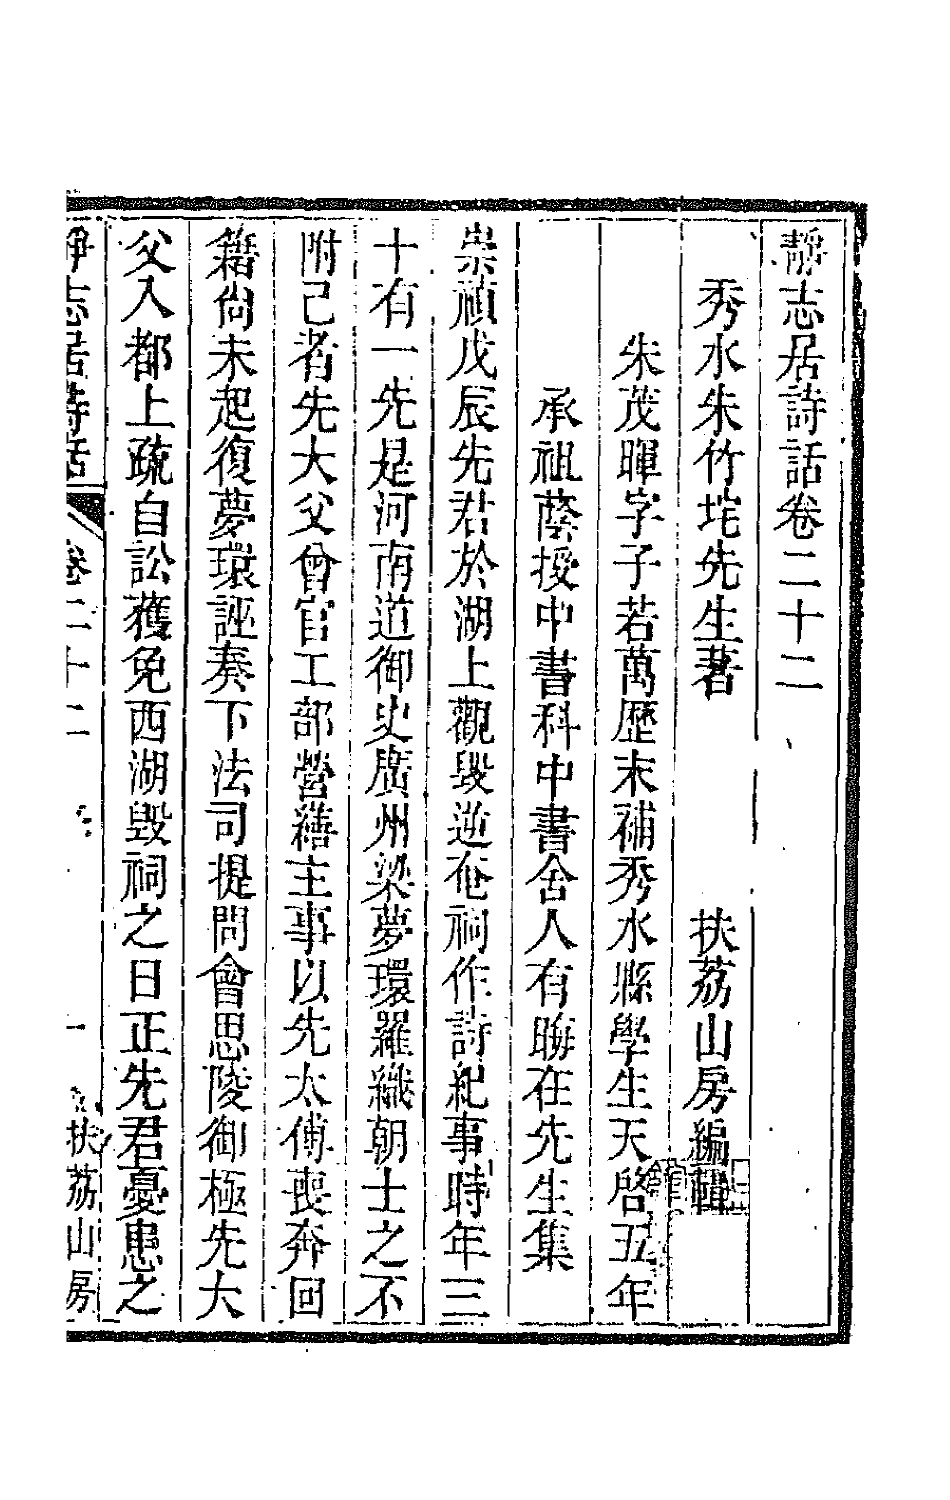 靜志居詩話卷二十二
秀水朱竹垞先生著　扶荔山房編輯
朱茂暉字子若萬歷末補秀水縣學生天啓五年
承祖蔭授中書科中書舍人有晦在先生集
崇禎戊辰先君於湖上觀毀逆奄祠作詩紀事時年三
十有一先是河南道御史廣州梁夢環羅織朝士之不
附己者先大父曾官工部營繕主事以先太傅喪奔回
籍尙未起復夢環誣奏下法司提問會思陵御極先大
父入都上疏自訟獲免西湖毀祠之日正先君憂患之
靜志居詩話　卷二十二　一　扶荔山房